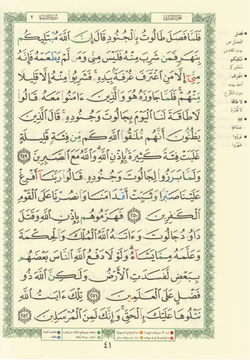 فَلَمَّا فَصَلَ طَالُوتُ بِٱلْجُنُودِ قَالَ إِنَّ ٱللَّهَ مُبْتَلِيكُم
بِنَهَرٍ فَمَن شَرِبَ مِنْهُ فَلَيْسَ مِنِّى وَمَن لَّمْ يَطْعَمْهُ فَإِنَّهُۥ
مِنِّىٓ إِلَّا مَنِ ٱغْتَرَفَ غُرْفَةًۢ بِيَدِهِۦ ۚ فَشَرِبُوا۟ مِنْهُ إِلَّا قَلِيلًا
مِّنْهُمْ ۚ فَلَمَّا جَاوَزَهُۥ هُوَ وَٱلَّذِينَ ءَامَنُوا۟ مَعَهُۥ قَالُوا۟
لَا طَاقَةَ لَنَا ٱلْيَوْمَ بِجَالُوتَ وَجُنُودِهِۦ ۚ قَالَ ٱلَّذِينَ
يَظُنُّونَ أَنَّهُم مُّلَٰقُوا۟ ٱللَّهِ كَم مِّن فِئَةٍ قَلِيلَةٍ
غَلَبَتْ فِئَةً كَثِيرَةًۢ بِإِذْنِ ٱللَّهِ ۗ وَٱللَّهُ مَعَ ٱلصَّٰبِرِينَ ٢٤٩
وَلَمَّا بَرَزُوا۟ لِجَالُوتَ وَجُنُودِهِۦ قَالُوا۟ رَبَّنَآ أَفْرِغْ
عَلَيْنَا صَبْرًا وَثَبِّتْ أَقْدَامَنَا وَٱنصُرْنَا عَلَى ٱلْقَوْمِ
ٱلْكَٰفِرِينَ ٢٥٠ فَهَزَمُوهُم بِإِذْنِ ٱللَّهِ وَقَتَلَ
دَاوُۥدُ جَالُوتَ وَءَاتَىٰهُ ٱللَّهُ ٱلْمُلْكَ وَٱلْحِكْمَةَ
وَعَلَّمَهُۥ مِمَّا يَشَآءُ ۗ وَلَوْلَا دَفْعُ ٱللَّهِ ٱلنَّاسَ بَعْضَهُم
بِبَعْضٍ لَّفَسَدَتِ ٱلْأَرْضُ وَلَٰكِنَّ ٱللَّهَ ذُو
فَضْلٍ عَلَى ٱلْعَٰلَمِينَ ٢٥١ تِلْكَ ءَايَٰتُ ٱللَّهِ
نَتْلُوهَا عَلَيْكَ بِٱلْحَقِّ ۚ وَإِنَّكَ لَمِنَ ٱلْمُرْسَلِينَ ٢٥٢
٤١